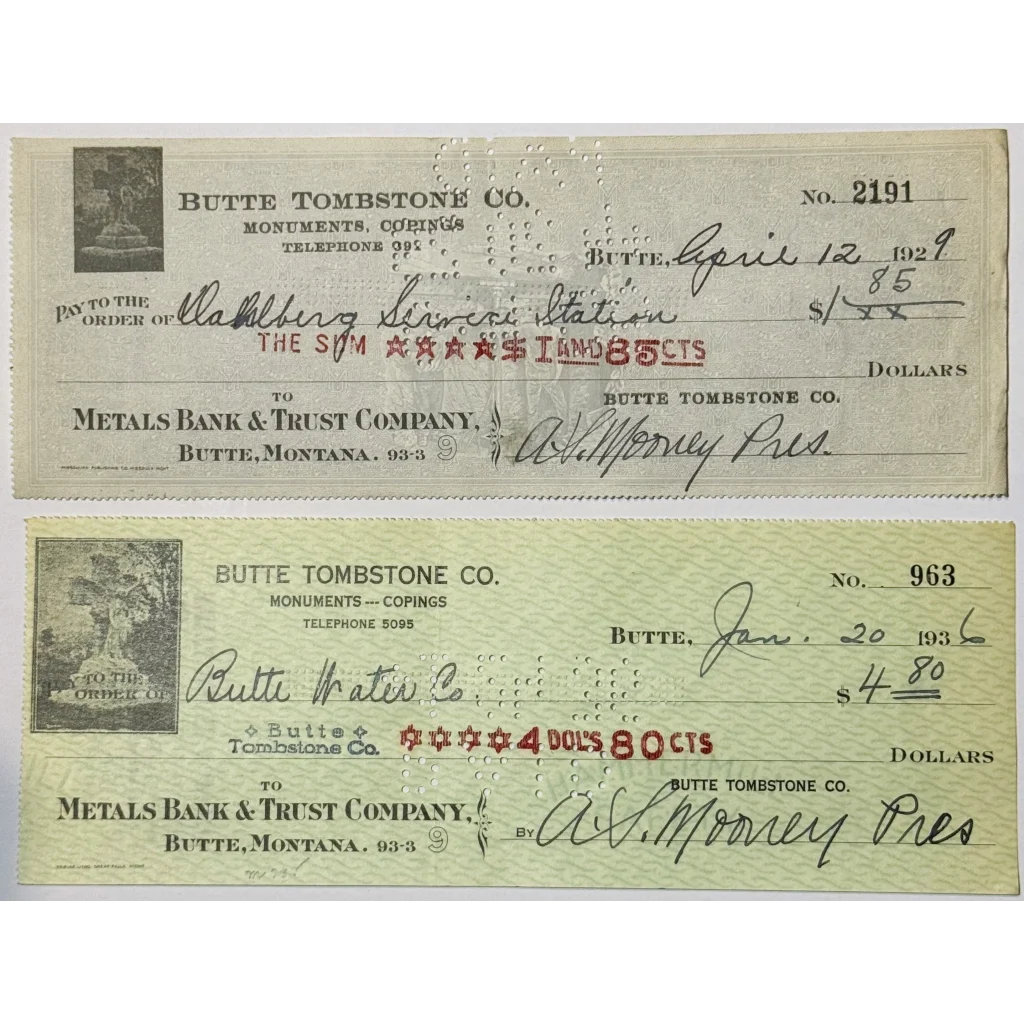 BUTTE TOMBSTONE CO.
MONUMENTS, COPINGS
TELEPHONE
No. 2191
BUTTE, April 12 1929
PAY TO THE ORDER OF Dahlberg Service Station $1 85/xx
THE SUM ★★★★$1 AND 85 CTS
DOLLARS
TO
METALS BANK & TRUST COMPANY,
BUTTE, MONTANA. 93-3 9
BUTTE TOMBSTONE CO.
A. S. Mooney Pres.
BUTTE TOMBSTONE CO.
MONUMENTS --- COPINGS
TELEPHONE 5095
No. 963
BUTTE, Jan. 20 1936
TO THE ORDER OF Butte Water Co. $4 80
Butte
Tombstone Co.
✡✡✡✡4 DOL'S 80 CTS
DOLLARS
TO
METALS BANK & TRUST COMPANY,
BUTTE, MONTANA. 93-3 9
BUTTE TOMBSTONE CO.
BY A. S. Mooney Pres